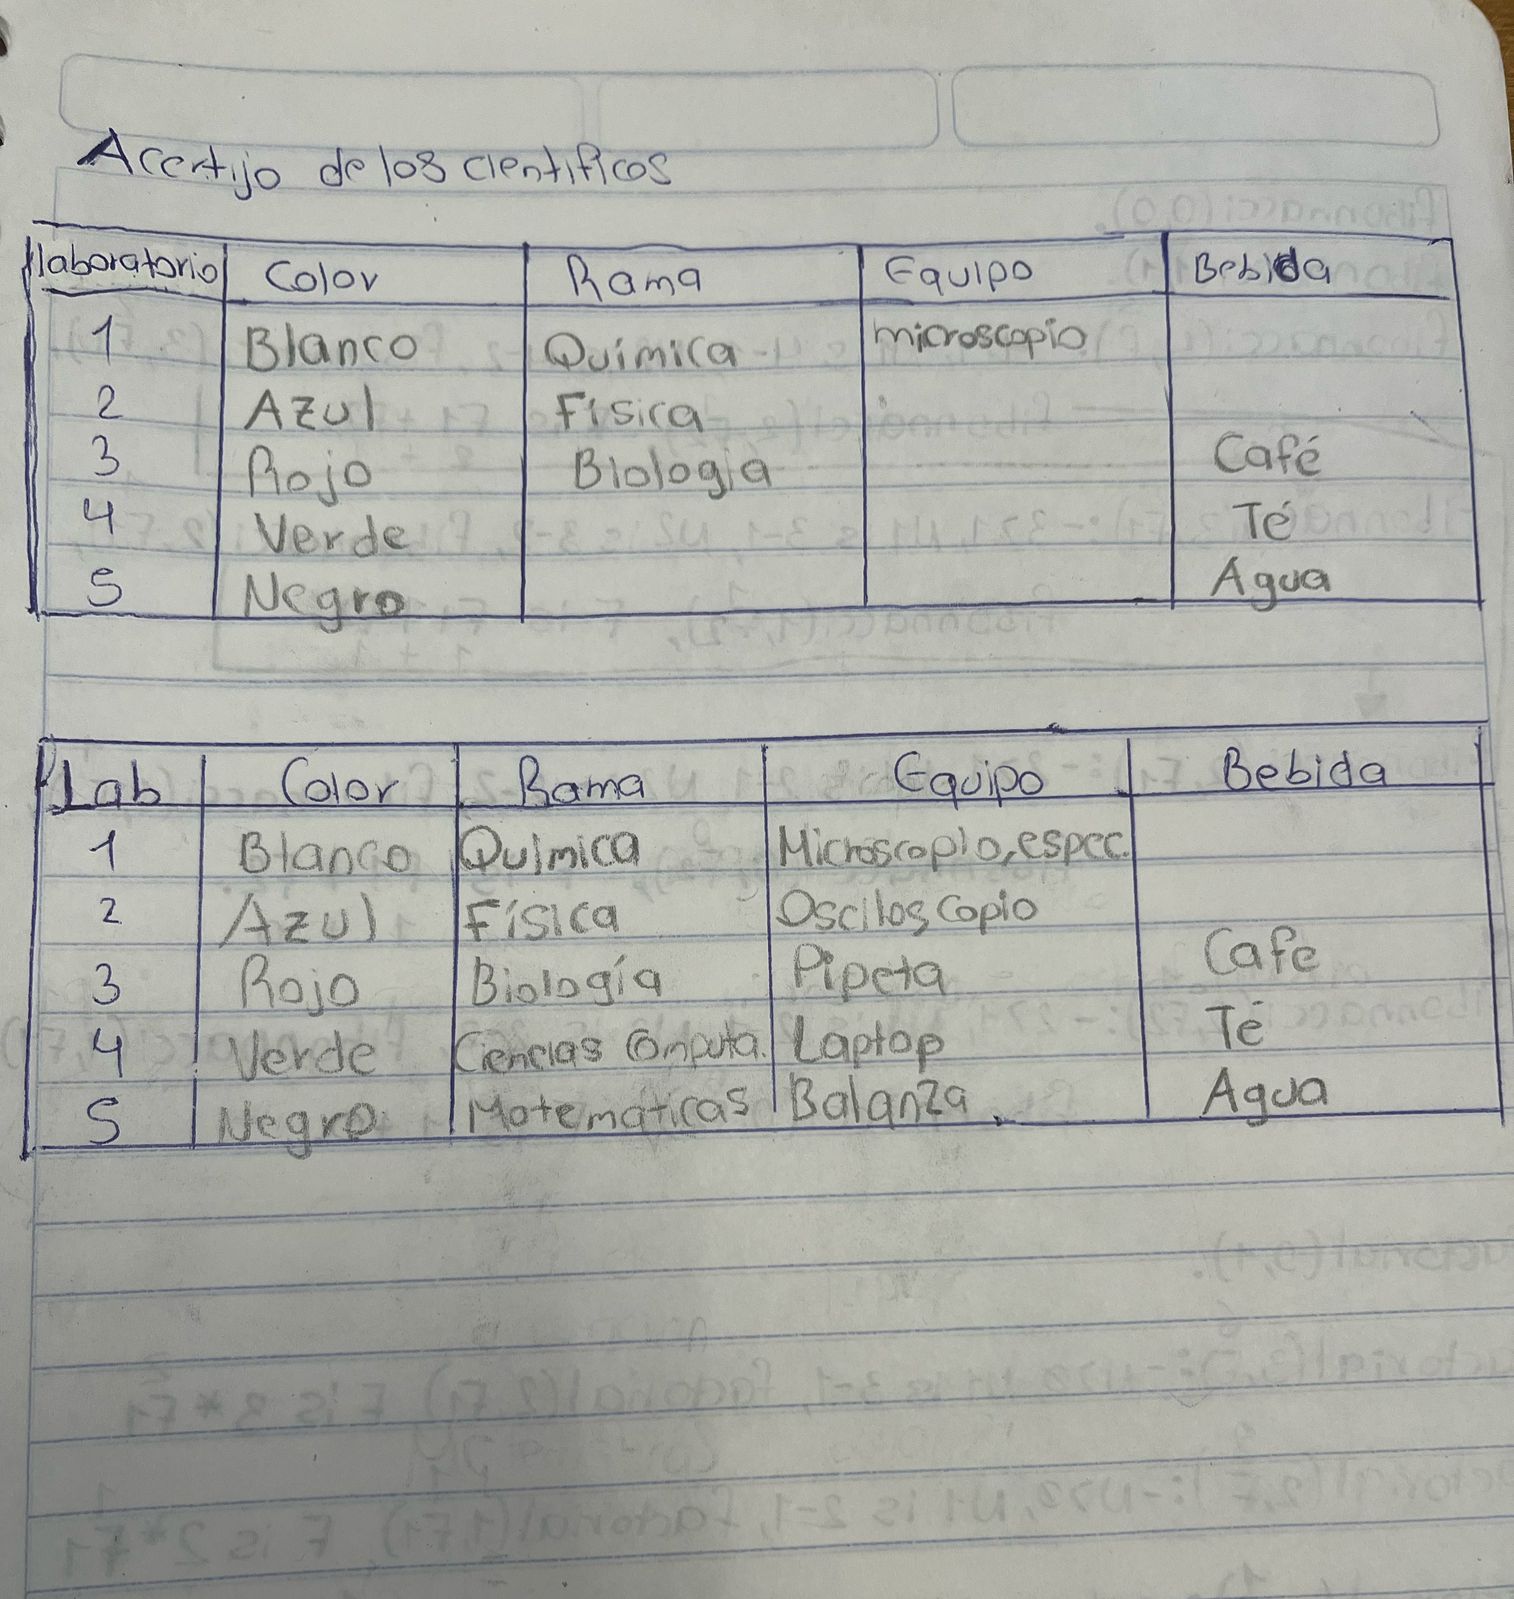 Acertijo de los cientificos
laboratorio Color Rama Equipo Bebida
1 Blanco Química microscopio
2 Azul Física
3 Rojo Biología Café
4 Verde Té
5 Negro Agua
Lab Color Rama Equipo Bebida
1 Blanco Química Microscopio, espec.
2 Azul Física Osciloscopio
3 Rojo Biología Pipeta Cafe
4 Verde Ciencias Computa. Laptop Té
5 Negro Matematicas Balanza Agua